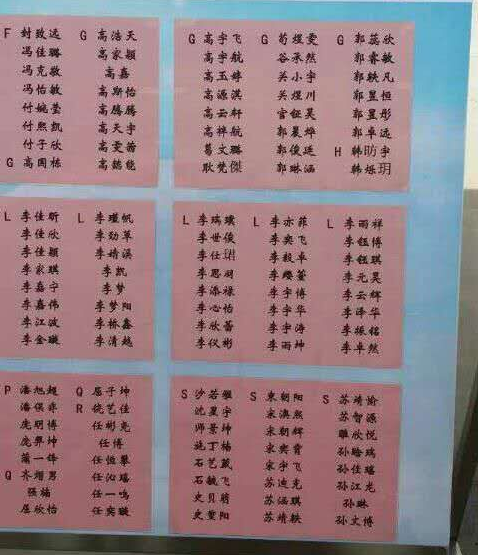 F 封致远
冯佳璐
冯克敬
冯怡敏
付婉莹
付熙凯
付子欣
G 高国栋
G 高浩天
高家颖
高嘉
高斯怡
高腾腾
高天宇
高雯茜
高懿能
G 高宇飞
高宇航
高玉婷
高源淇
高云轩
高梓航
葛文璐
耿梵傑
G 苟煜雯
谷承然
关小宇
关煜川
官钰昊
郭晨烨
郭俊廷
郭琳涵
G 郭蕊欣
郭睿敏
郭轶凡
郭昱恒
郭昱彤
郭卓远
H 韩昉宇
韩烁玥
L 李佳昕
李佳欣
李佳颖
李家琪
李嘉宁
李嘉伟
李江波
李金璇
L 李瑾帆
李劲草
李婧淇
李凯
李梦
李梦阳
李栋鑫
李清越
L 李瑞璞
李世俊
李仕琪
李思玥
李添禄
李心怡
李欣蕾
李仪彬
L 李亦菲
李奕飞
李毅卓
李缨蕾
李宇博
李宇华
李宇涛
李雨坤
L 李雨祥
李钰博
李钰琪
李元昊
李云辉
李泽华
李振铭
李卓然
P 潘旭超
潘俣弈
庞明博
庞羿坤
蒲一锋
Q 齐增男
强楠
屈欣怡
Q 屈子坤
R 饶艺佳
任彬尧
任博
任恒攀
任沁瑶
任一鸣
任奕璇
S 沙若雅
沈星宇
师景坤
施丁楠
石艺葳
石毓飞
史贝萌
史蓥阳
S 宋朝阳
宋澳熙
宋朝辉
宋奕霄
宋宇飞
苏迪克
苏涵琪
苏靖轶
S 苏靖愉
苏智源
睢欣悦
孙晗瑞
孙佳瑶
孙江龙
孙琳
孙文博